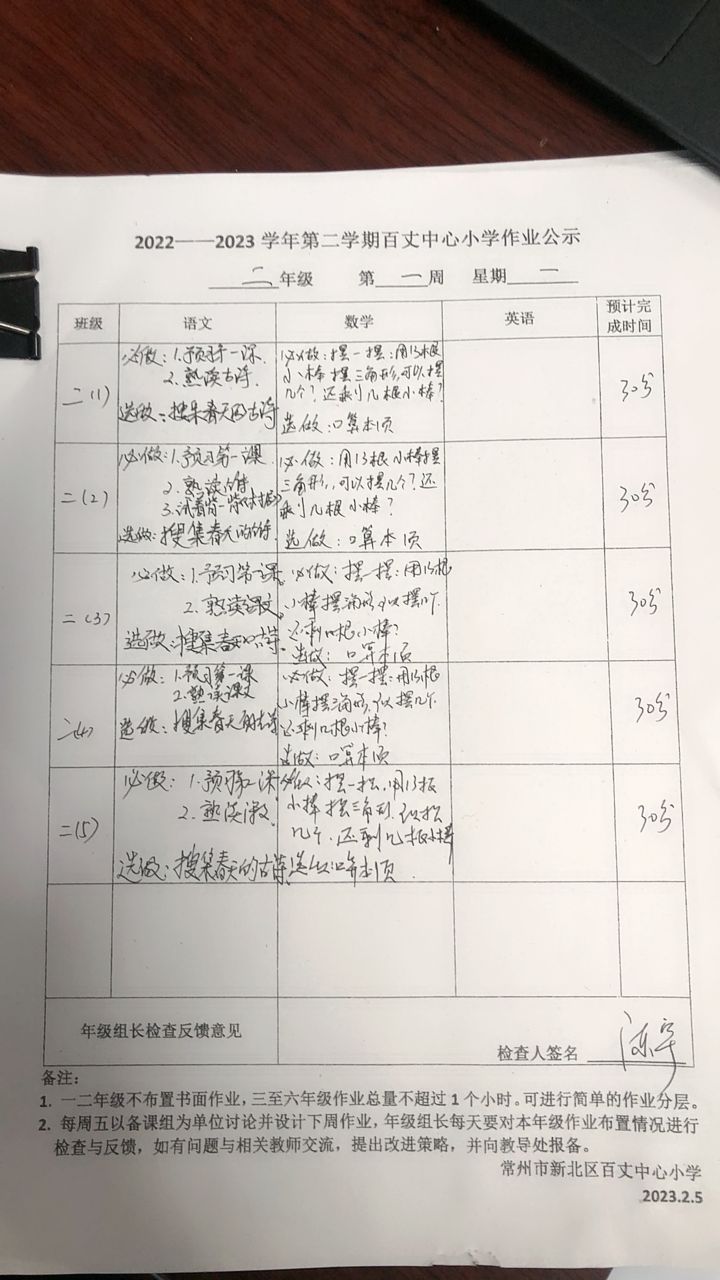 2022——2023 学年第二学期百丈中心小学作业公示
二 年级 第 一 周 星期 二
班级 语文 数学 英语 预计完成时间
二(1)
必做：1.预习第一课
2.熟读古诗
选做：搜集春天的古诗
必做：摆一摆：用13根
小棒摆三角形,可以摆
几个？还剩几根小棒？
选做：口算本1页
30分
二(2)
必做：1.预习第一课
2.熟读古诗
3.试着背一背
选做：搜集春天的古诗
必做：用13根小棒摆
三角形,可以摆几个？还
剩几根小棒？
选做：口算本1页
30分
二(3)
必做：1.预习第一课
2.熟读课文
选做：搜集春天的古诗
必做：摆一摆：用13根
小棒摆三角形,可以摆几个,
还剩几根小棒？
选做：口算本1页
30分
二(4)
必做：1.预习第一课
2.熟读课文
选做：搜集春天的古诗
必做：摆一摆：用13根
小棒摆三角形,可以摆几个
还剩几根小棒？
选做：口算本1页
30分
二(5)
必做：1.预习第一课
2.熟读课文
选做：搜集春天的古诗
必做：摆一摆,用13根
小棒摆三角形.可以摆
几个.还剩几根小棒
选做：口算本1页.
30分
年级组长检查反馈意见
检查人签名
备注：
1. 一二年级不布置书面作业，三至六年级作业总量不超过 1 个小时。可进行简单的作业分层。
2. 每周五以备课组为单位讨论并设计下周作业，年级组长每天要对本年级作业布置情况进行
检查与反馈，如有问题与相关教师交流，提出改进策略，并向教导处报备。
常州市新北区百丈中心小学
2023.2.5